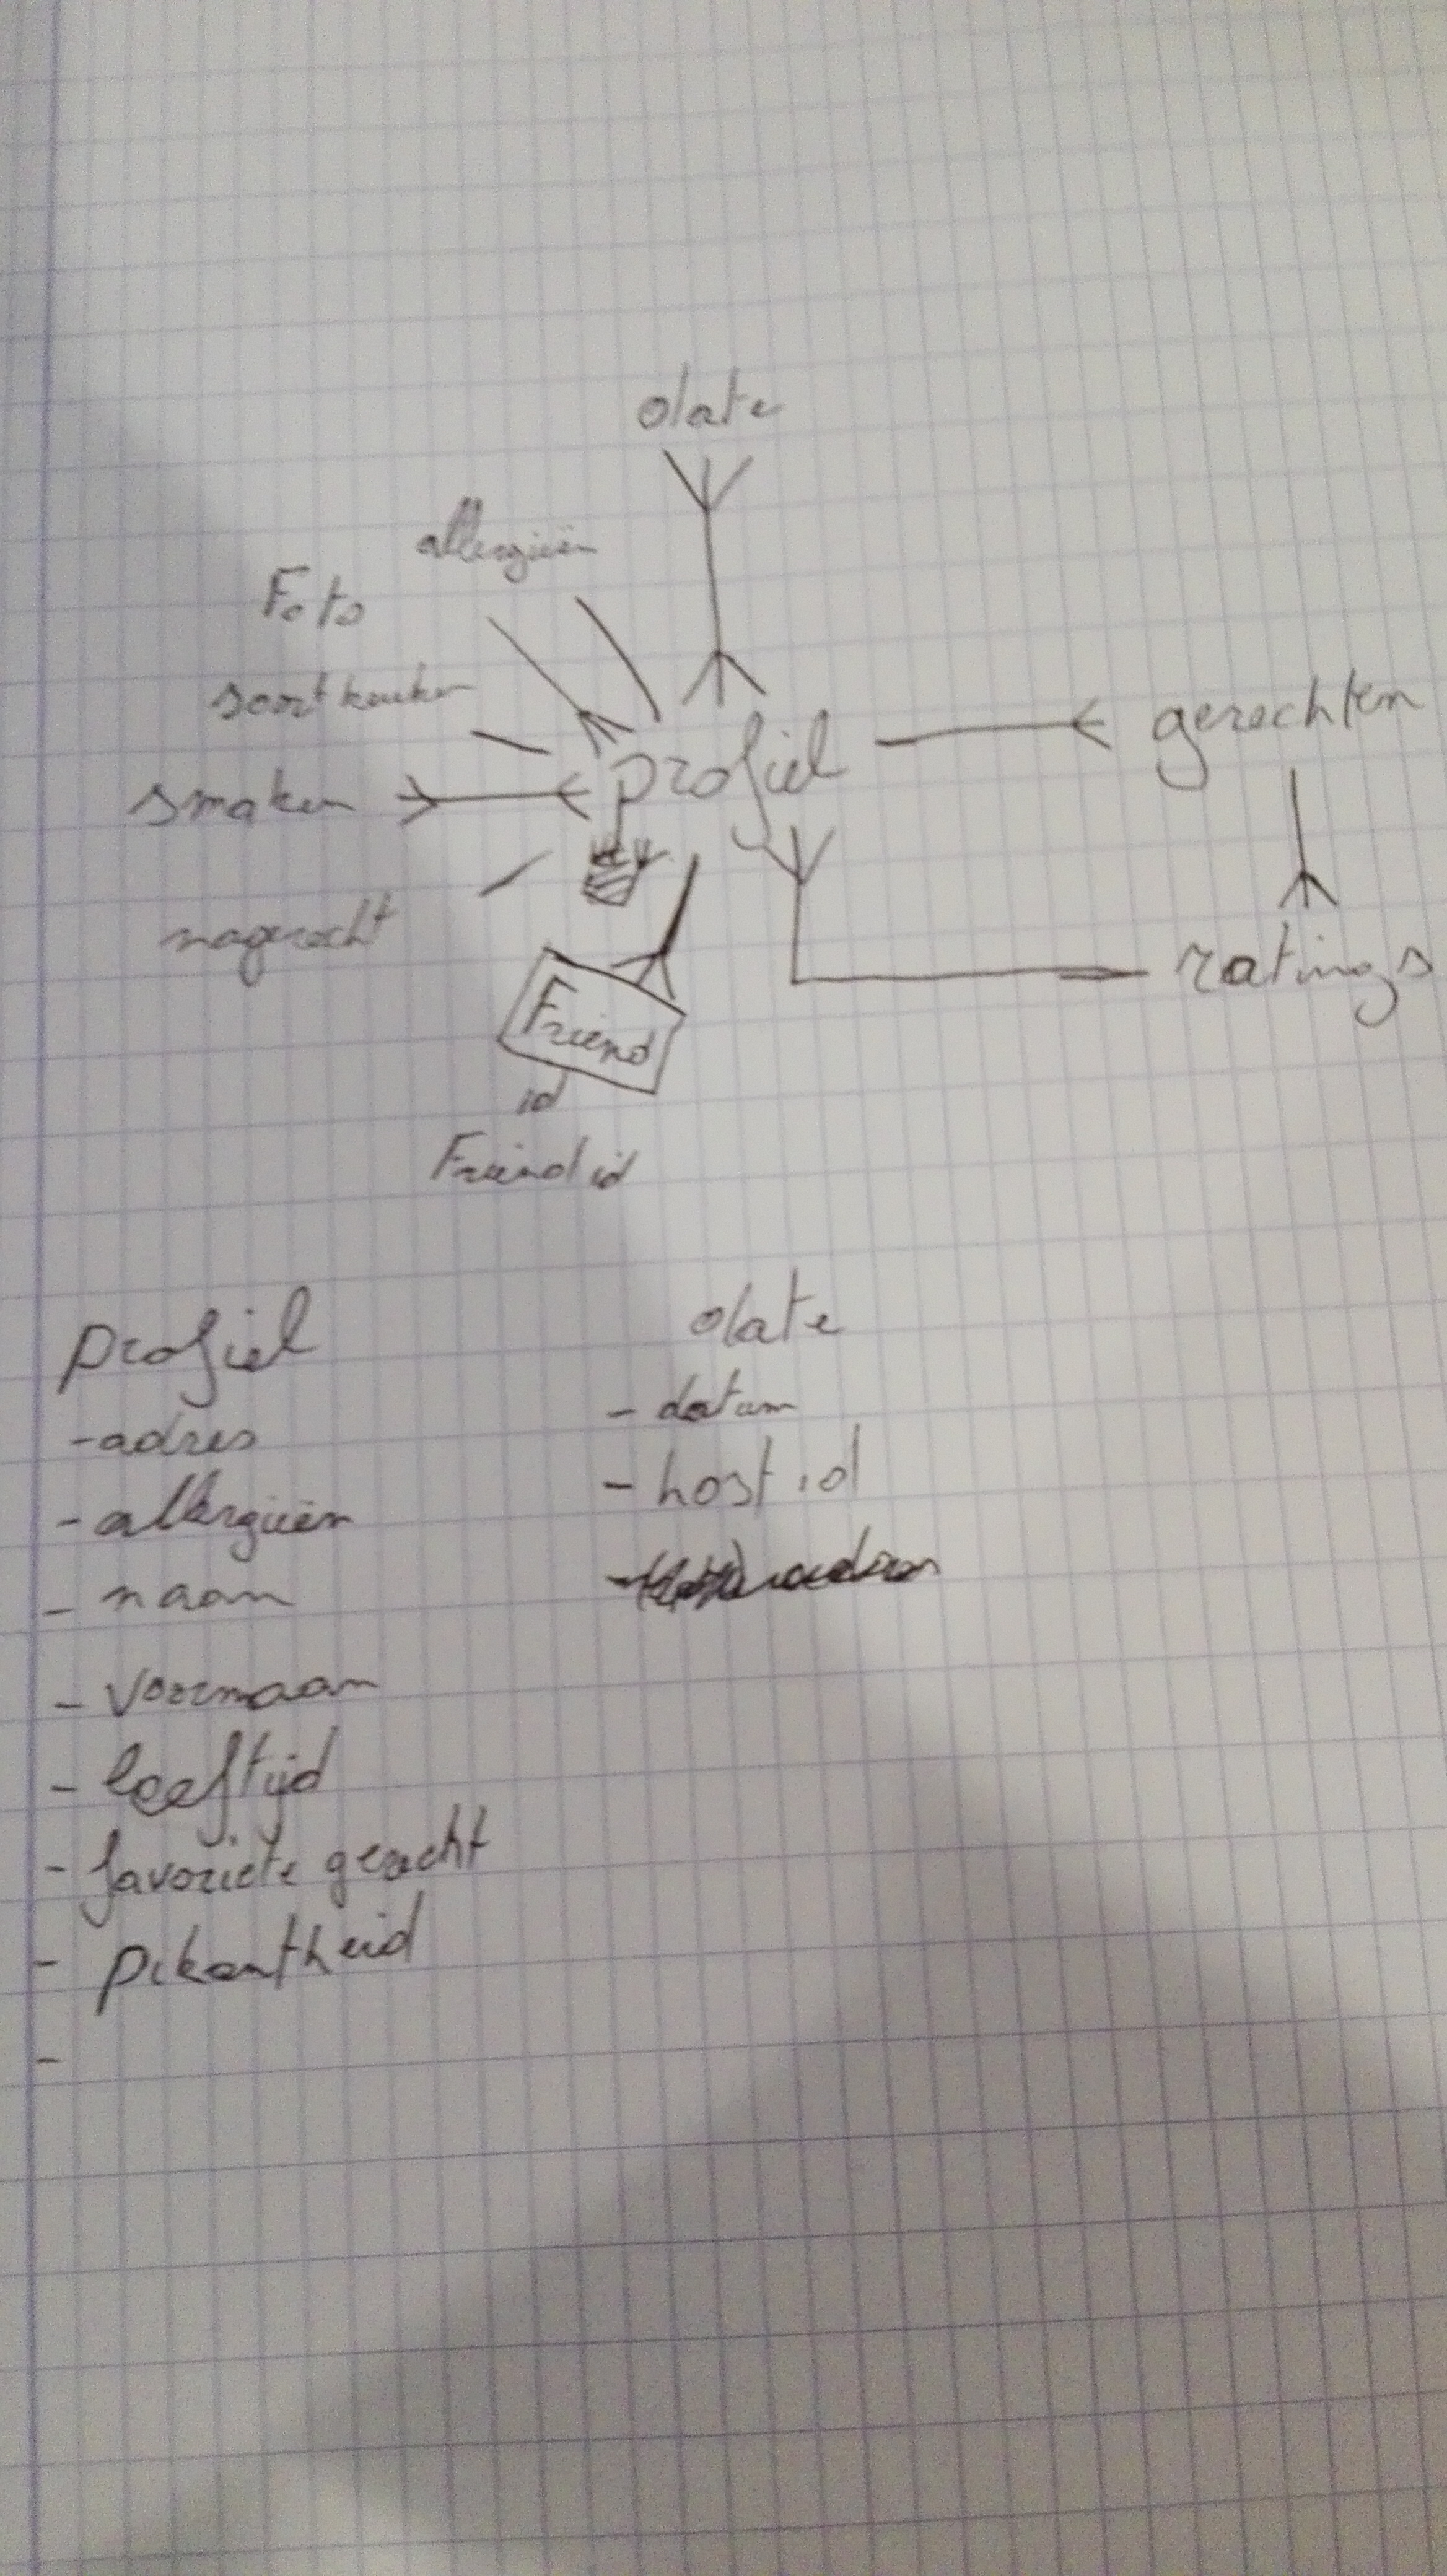 date
allergieën
Foto
soort keuken
profiel
gerechten
smaken
nagerecht
ratings
Friend
id
Friend id
profiel
- adres
- allergieën
- naam
- voornaam
- leeftijd
- favoriete gerecht
- pikantheid
-
date
- datum
- host id